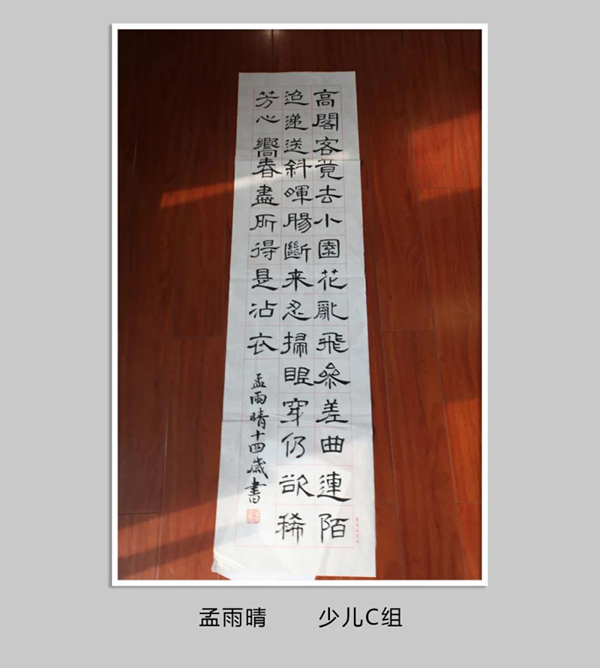 高閣客竟去小園花亂飛參差曲連陌
迢遞送斜暉腸斷来忍掃眼穿仍欲稀
芳心嚮春盡所得是沾衣
孟雨晴十四歲書
孟雨晴 少儿C组